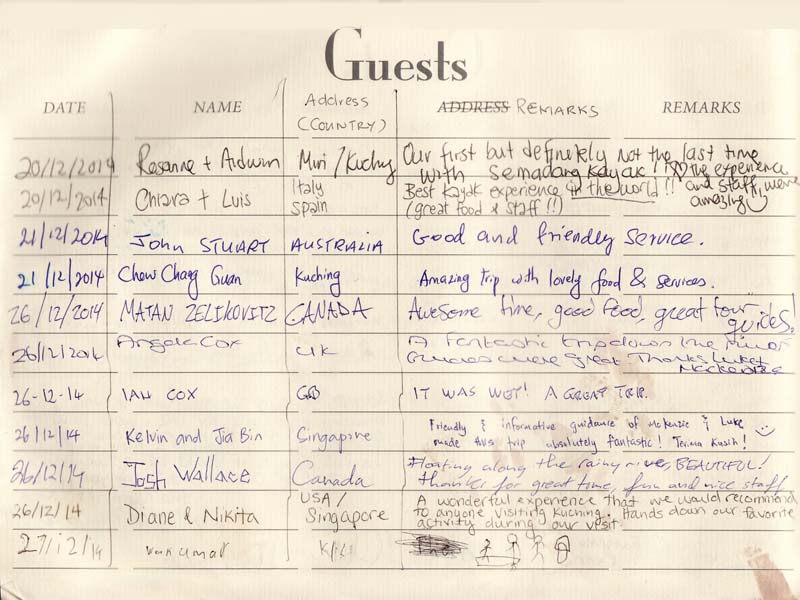 Guests
DATE NAME Address (COUNTRY) ADDRESS REMARKS REMARKS
20/12/2014 Rosanne + Audwin Miri / Kuching Our first but definitely not the last time
with Semadang Kayak! The experience
and staff were amazing
20/12/2014 Chiara + Luis Italy Spain Best Kayak experience in the world!!
(great food & staff!!)
21/12/2014 John STUART AUSTRALIA Good and friendly service.
21/12/2014 Chow Chang Guan Kuching Amazing trip with lovely food & services.
26/12/2014 MATAN ZELIKOVITZ CANADA Awesome time, good food, great tour
guides!
26/12/2014 Angela Cox UK A fantastic trip down the river
Guides were great Thanks Luke +
Mackenzie
26-12-14 IAN COX GB IT WAS WET! A GREAT TRIP.
26/12/14 Kelvin and Jia Bin Singapore Friendly & informative guidance of McKenzie & Luke
made this trip absolutely fantastic! Terima Kasih!
26/12/14 Josh Wallace Canada Floating along the rainy river, BEAUTIFUL!
thanks for great time, fun and nice staff
26/12/14 Diane & Nikita USA / Singapore A wonderful experience that we would recommend
to anyone visiting Kuching. Hands down our favorite
activity during our visit
27/12/14 kumar